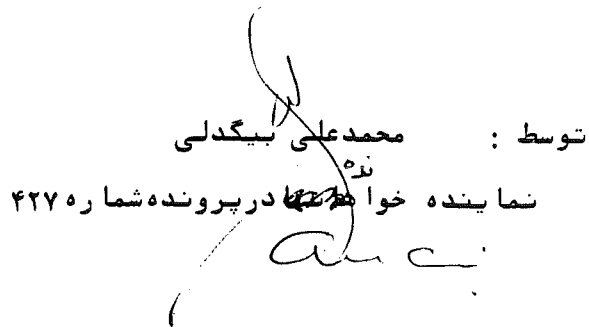 توسط : محمدعلی بیگدلی
نماینده خواهنده در پرونده شماره ۴۲۷